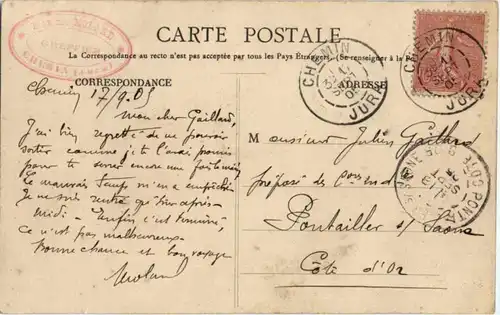 CARTE POSTALE
La Correspondance au recto n'est pas acceptée par tous les Pays Étrangers. (Se renseigner à la Poste)
CORRESPONDANCE
ADRESSE
CHEMIN
JURA
CHEMIN
JURA
Chemin 17/9.05
Mon cher Gaillard,
J'ai bien regretté de ne pouvoir
rester comme je te l'avais promis
pour te serrer encore une fois la main
Le mauvais temps m'en a empêché
Je ne suis rentré que hier après-
midi. - Enfin c'est terminé,
Ce n'est pas malheureux.
Bonne chance et bon voyage
Molard
M onsieur Julien Gaillard
préposé des
Pontailler s/ Saône
Côte d'Or